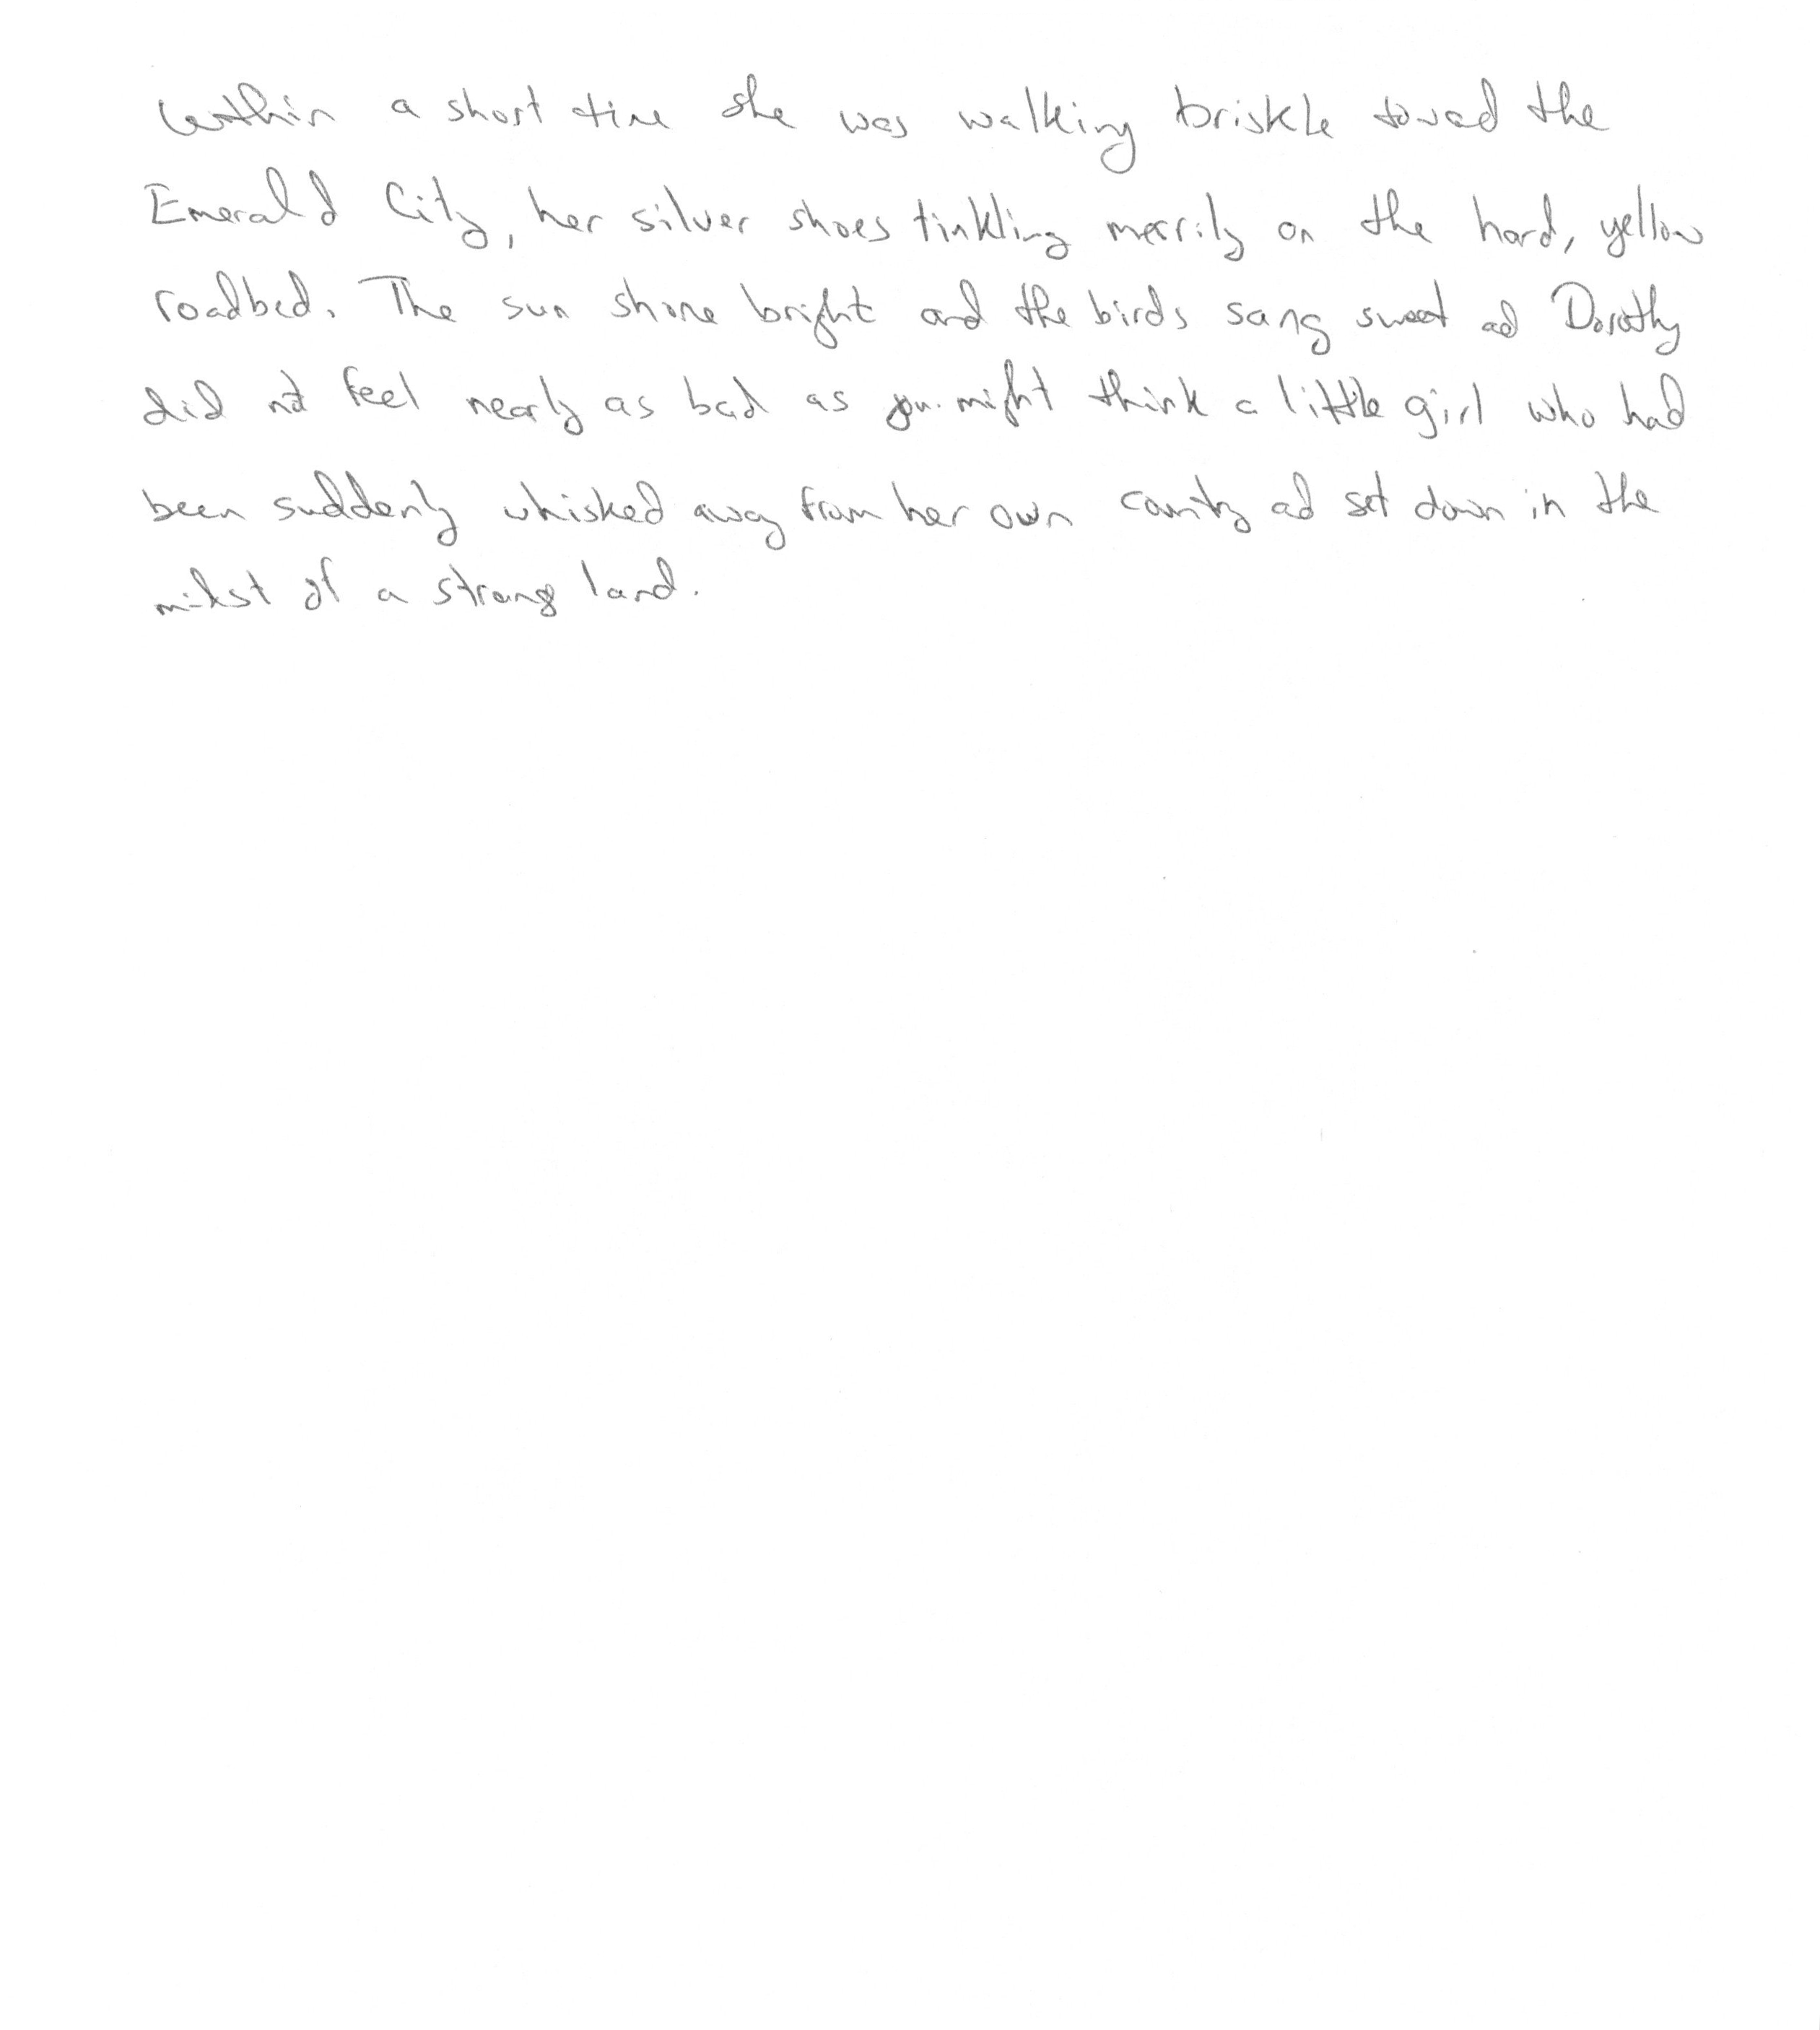 Within a short time she was walking briskle toward the
Emerald City, her silver shoes tinkling merrily on the hard, yellow
roadbed. The sun shone bright and the birds sang sweet ad Dorothy
did not feel nearly as bad as you might think a little girl who had
been suddenly whisked away from her own country ad set down in the
midst of a strange land.